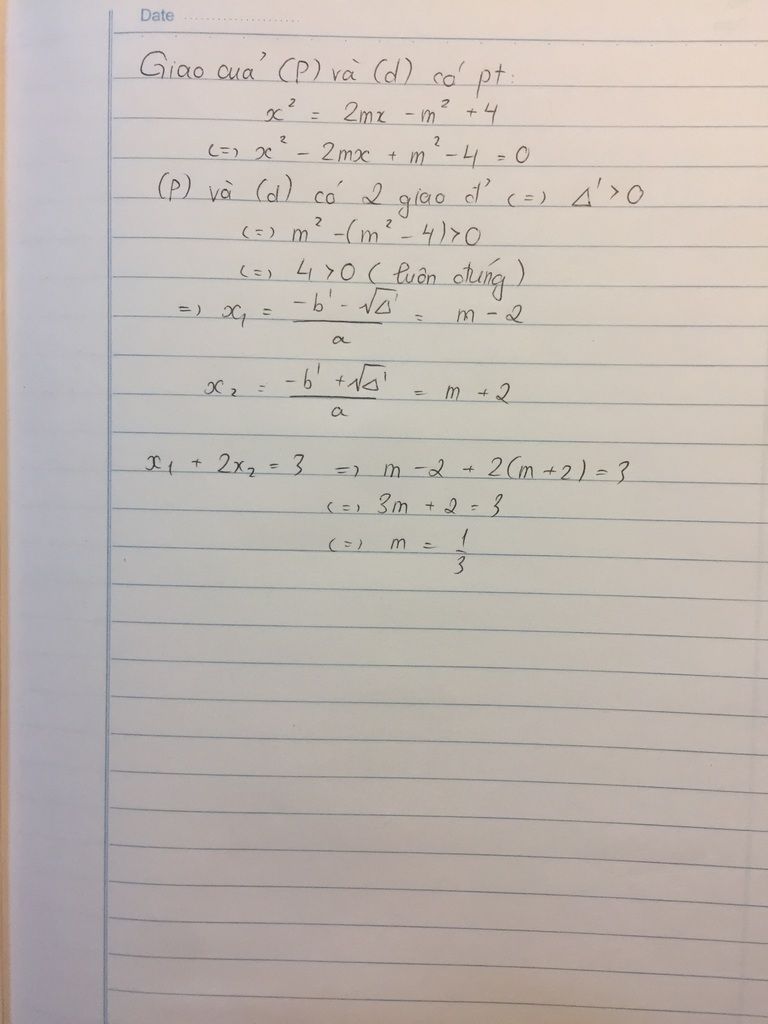 Date
Giao của (P) và (d) có pt:
x² = 2mx - m² + 4
<=> x² - 2mx + m² - 4 = 0
(P) và (d) có 2 giao đ' <=> Δ' > 0
<=> m² - (m² - 4) > 0
<=> 4 > 0 (luôn đúng)
=> x₁ = (-b' - √Δ')/a = m - 2
x₂ = (-b' + √Δ')/a = m + 2
x₁ + 2x₂ = 3 => m - 2 + 2(m + 2) = 3
<=> 3m + 2 = 3
<=> m = 1/3